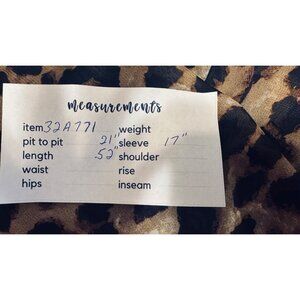 measurements
item 32A771 weight
pit to pit 21" sleeve 17"
length 52" shoulder
waist rise
hips inseam